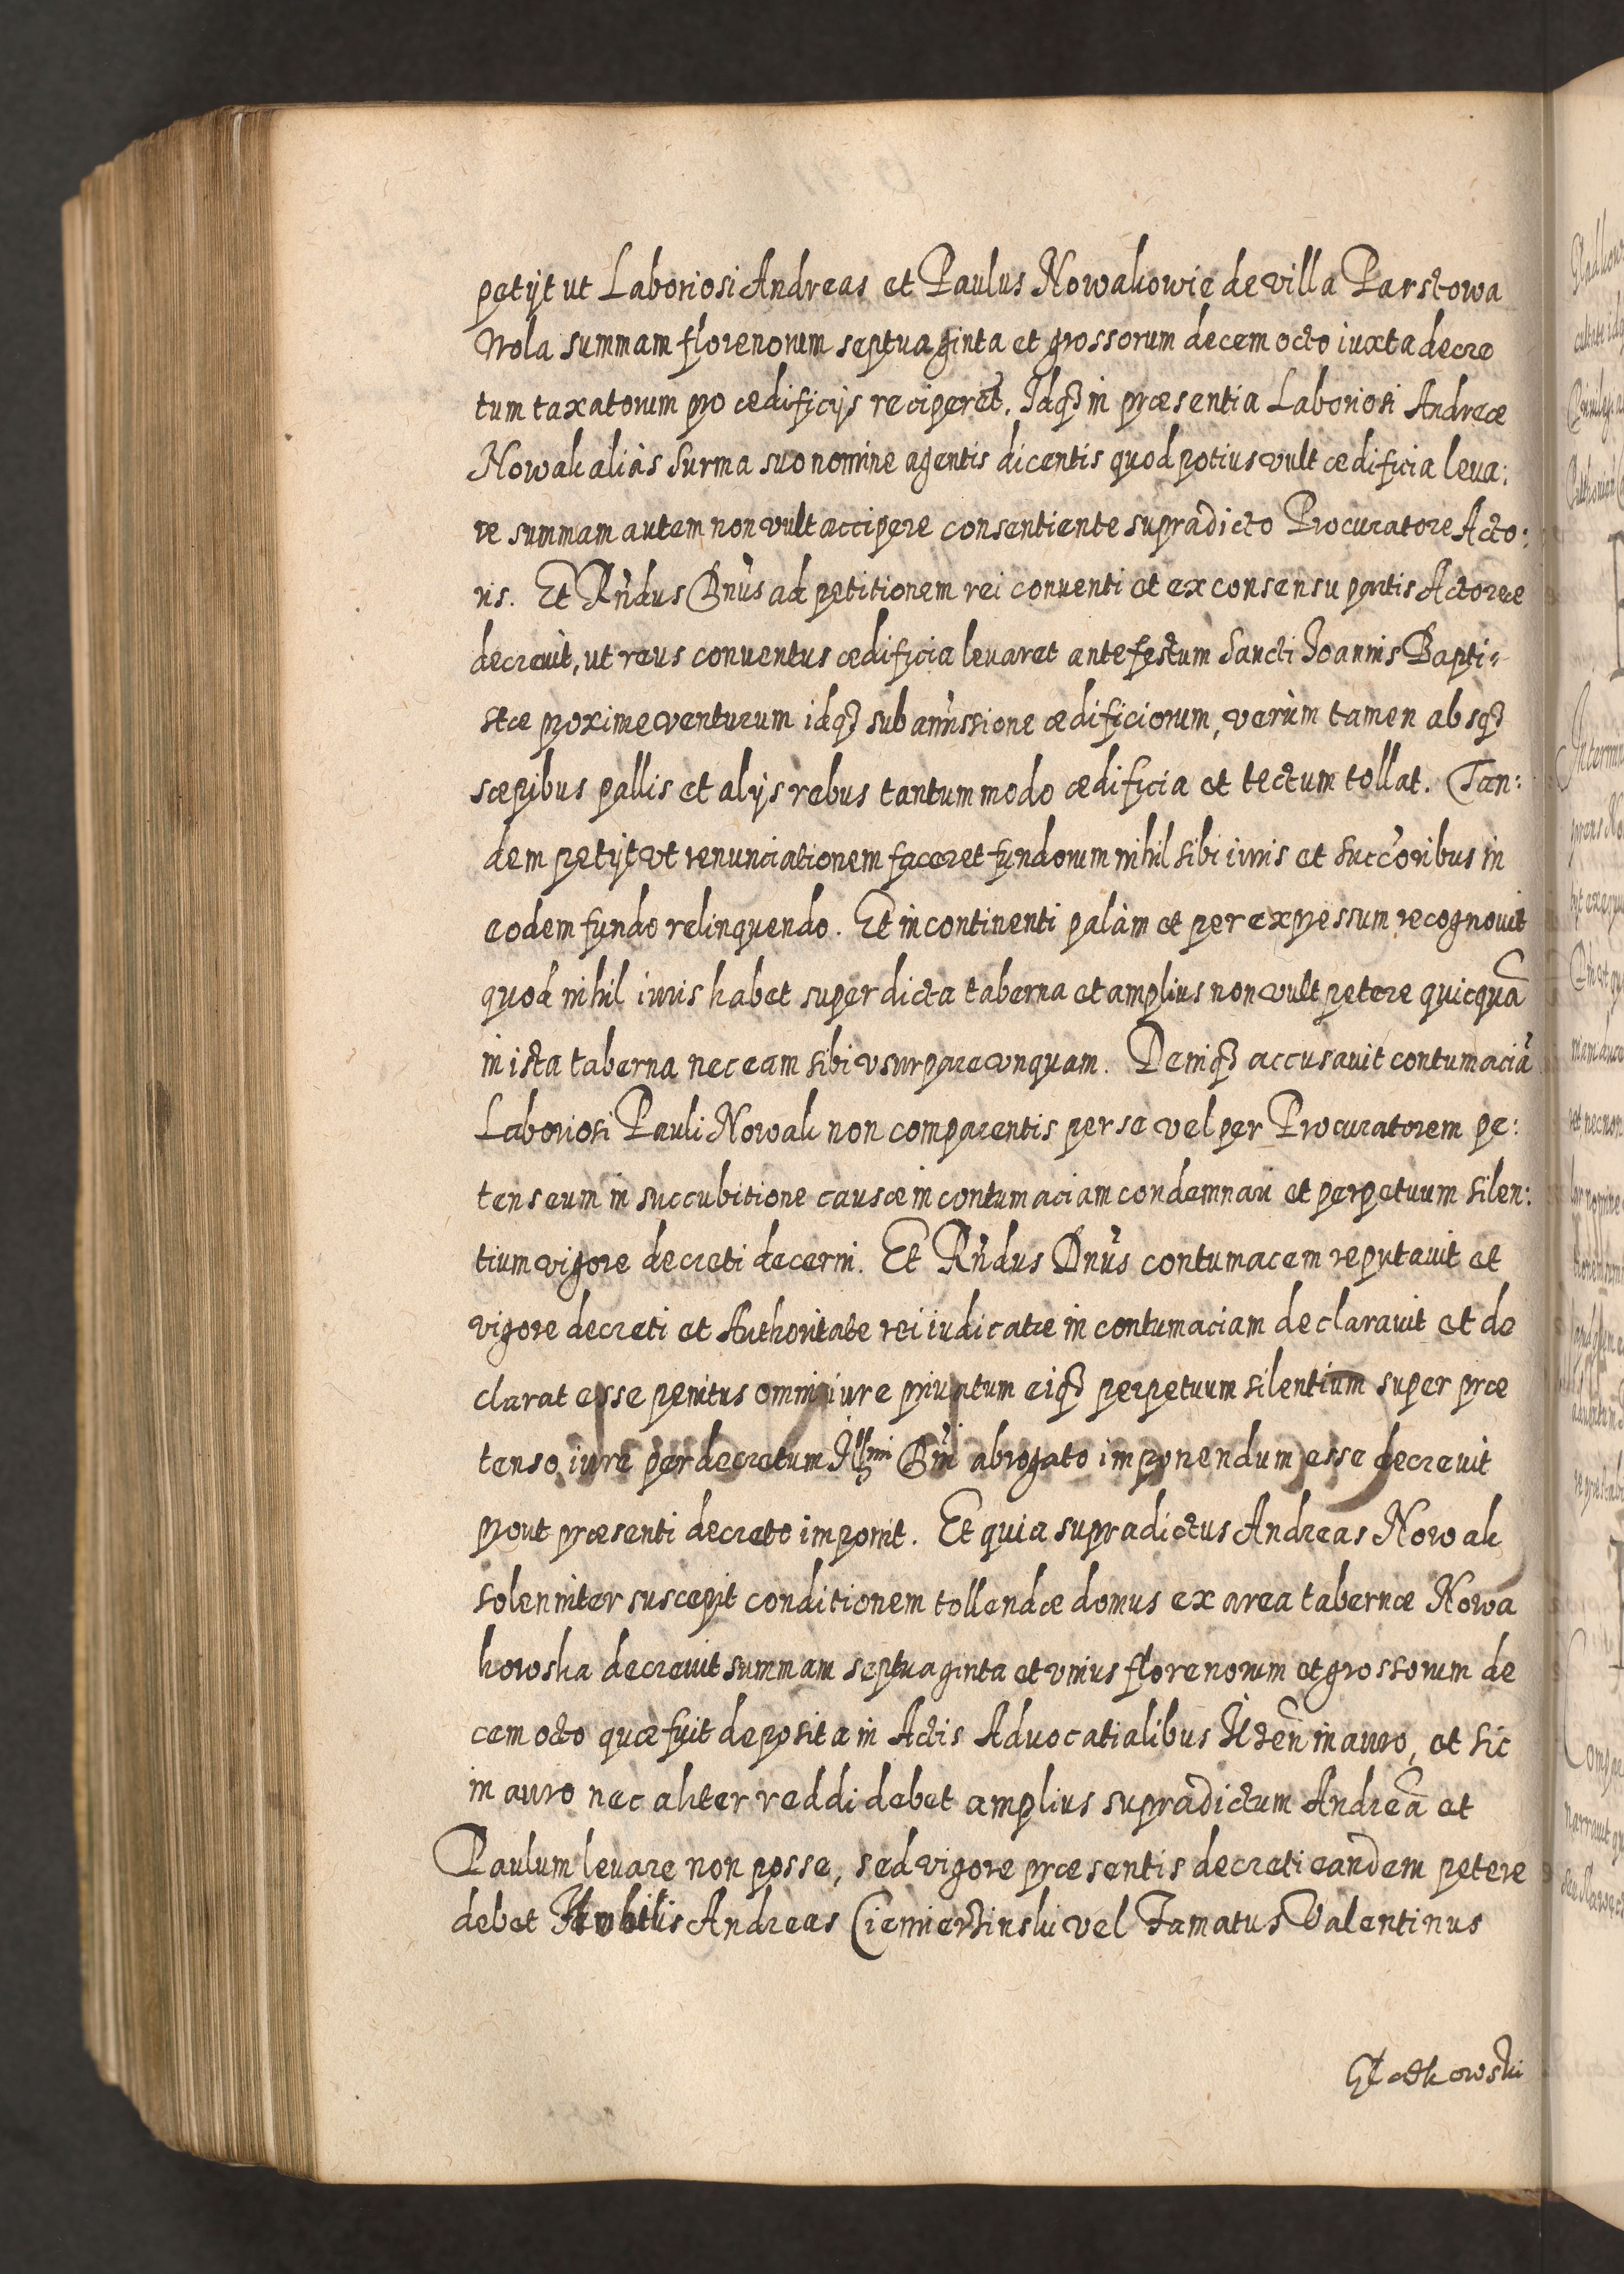 petijt ut Laboriosi Andreas et Paulus Nowakowie de villa Parstowa
Wola summam florenorum septuaginta et grossorum decem octo iuxta decre
tum taxatorum pro ædificijs reciperet. Idq3 in præsentia Laboriosi Andreæ
Nowak aliàs Surma suo nomine agentis dicentis quod potius vult ædificia leua:
re summam autem non vult accipere consentiente supradicto Procuratore Acto:
ris. Et Rndus Dnus ad petitionem rei conuenti et ex consensu partis Actoreæ
decreuit, ut reus conuentus ædificia leuaret ante festum Sancti Joannis Bapti:
stæ proxime venturum idq3 sub amissione ædificiorum, verùm tamen absq3
sæpibus pallis et alijs rebus tantummodo ædificia et tectum tollat. Tan:
dem petijt vt renunciationem faceret fundorum nihil sibi iuris et succ'oribus in
eodem fundo relinquendo. Et in continenti palàm et per expressum recognouit
quod nihil iuris habet super dicta taberna et amplius non vult petere quicquã
in ista taberna nec eam sibi vsurpare vnquam. Deniq3 accusauit contumaciã
Laboriosi Pauli Nowak non comparentis per se vel per Procuratorem pe:
tens eum in succubitione causæ in contumaciam condemnari et perpetuum silen:
tium vigore decreti decerni. Et Rndus Dnus contumacem reputauit et
vigore decreti et Authoritate rei iudicatæ in contumaciam declarauit et de
clarat esse penitus omni iure priuatum eiq3 perpetuum silentium super præ
tenso iure per decretum Illmi Dni abrogato imponendum esse decreuit
prout præsenti decreto imponit. Et quia supradictus Andreas Nowak
solenniter suscepit conditionem tollendæ domus ex area tabernæ Nowa
kowska decreuit summam septuaginta et vnius florenorum et grossorum de
cem octo quæ fuit deposita in Actis Aduocatialibus in auro, et sic
in auro nec aliter reddi debet amplius supradictum Andreã et
Paulum leuare non posse, sed vigore præsentis decreti eandem petere
debet Andreas Ciemierzinski vel Famatus Valentinus